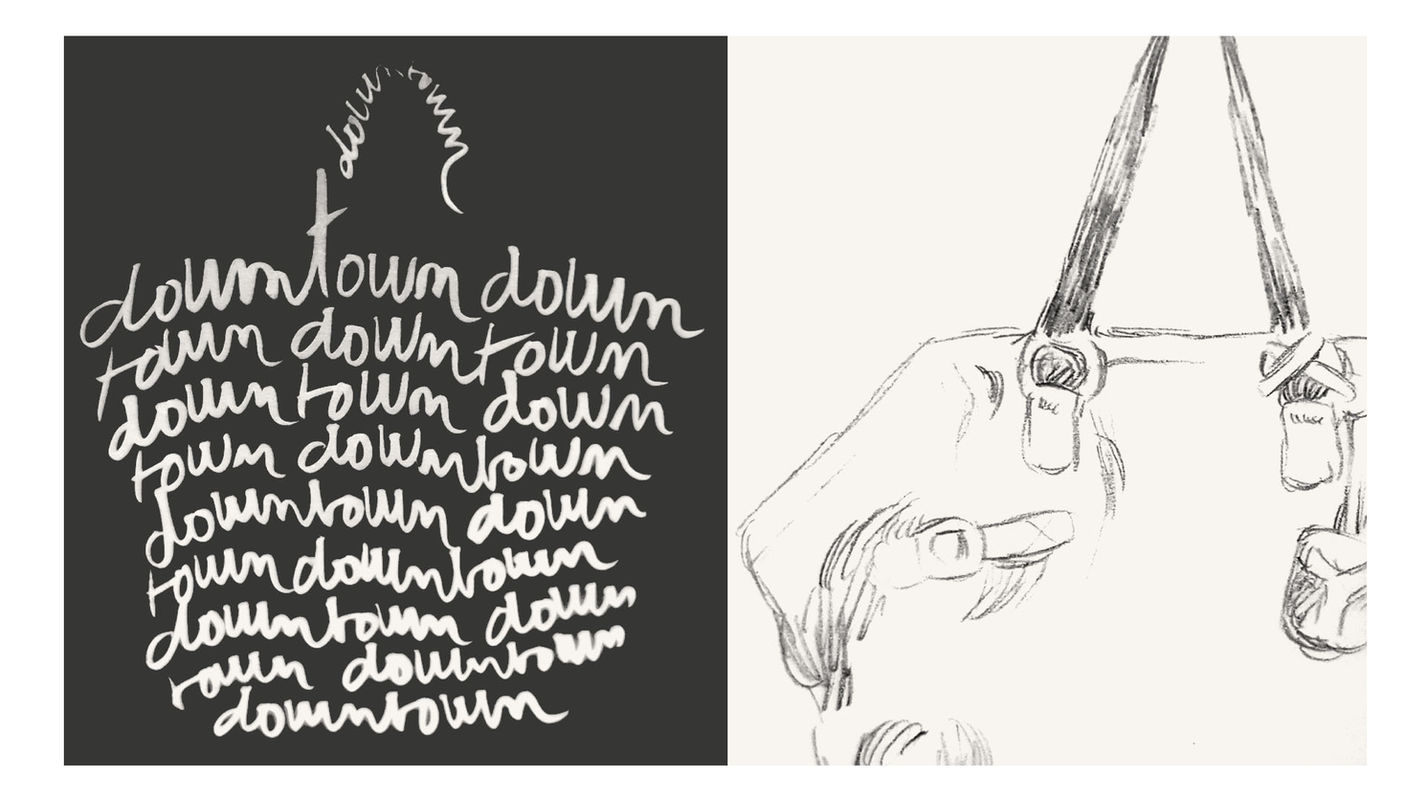 downtown
downtown down
town downtown
downtown down
town downtown
downtown down
town downtown
downtown down
town downtown
downtown